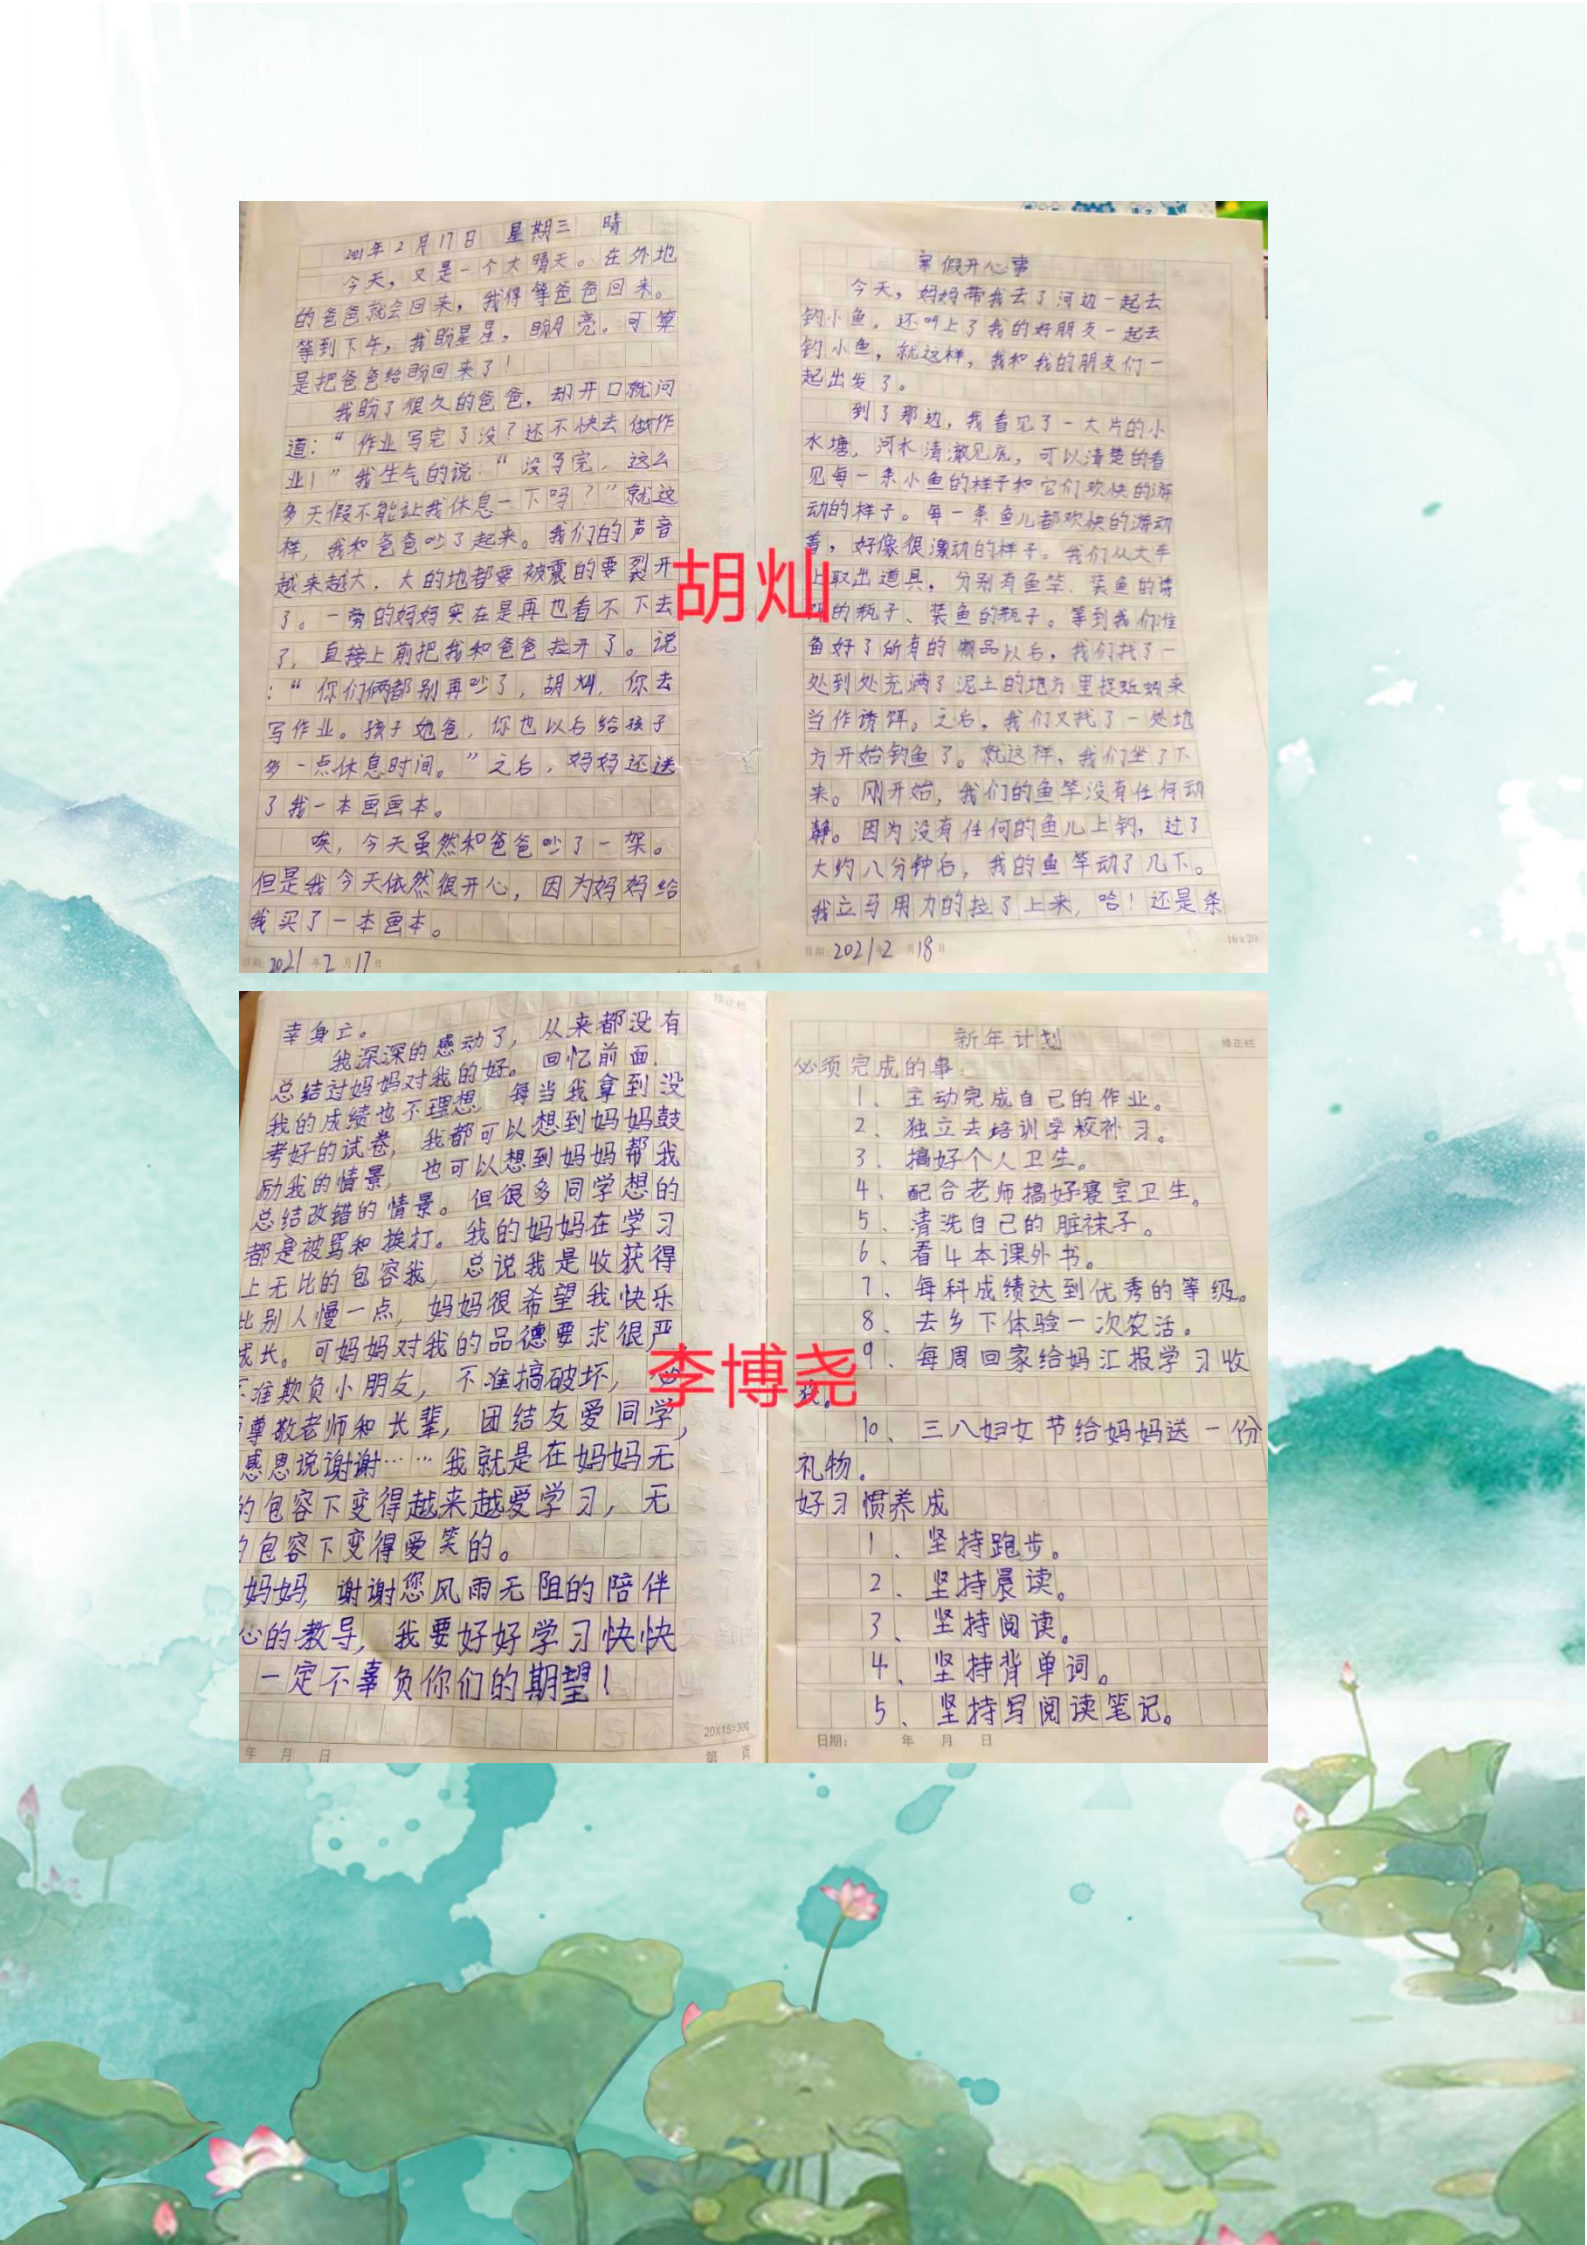 2021年2月17日 星期三 晴
今天，又是一个大晴天。在外地
的爸爸就会回来，我得等爸爸回来。
等到下午，我盼星星，盼月亮。可算
是把爸爸给盼回来了！
我盼了很久的爸爸，却开口就问
道：“作业写完了没？还不快去做作
业！”我生气的说：“没写完，这么
多天假不能让我休息一下吗？”就这
样，我和爸爸吵了起来。我们的声音
越来越大，大的地都要被震的要裂开
了。一旁的妈妈实在是再也看不下去
了，直接上前把我和爸爸拉开了。说
：“你们俩都别再吵了，胡灿，你去
写作业。孩子她爸，你也以后给孩子
多一点休息时间。”之后，妈妈还送
了我一本画画本。
唉，今天虽然和爸爸吵了一架。
但是我今天依然很开心，因为妈妈给
我买了一本画本。
日期：2021年2月17日
寒假开心事
今天，妈妈带我去了河边一起去
钓小鱼，还叫上了我的好朋友一起去
钓小鱼，就这样，我和我的朋友们一
起出发了。
到了那边，我看见了一大片的小
水塘，河水清澈见底，可以清楚的看
见每一条小鱼的样子和它们欢快的游
动的样子。每一条鱼儿都欢快的游动
着，好像很激动的样子。我们从大手
上取出道具，分别有鱼竿、装鱼的诱
饵的瓶子、装鱼的瓶子。等到我们准
备好了所有的物品以后，我们找了一
处到处充满了泥土的地方里捉蚯蚓来
当作诱饵。之后，我们又找了一处地
方开始钓鱼了。就这样，我们坐了下
来。刚开始，我们的鱼竿没有任何动
静。因为没有任何的鱼儿上钩，过了
大约八分钟后，我的鱼竿动了几下。
我立马用力的拉了上来，哈！还是条
日期：2021年2月18日
16x20
胡灿
幸身亡。
我深深的感动了，从来都没有
总结过妈妈对我的好。回忆前面，
我的成绩也不理想，每当我拿到没
考好的试卷，我都可以想到妈妈鼓
励我的情景，也可以想到妈妈帮我
总结改错的情景。但很多同学想的
都是被骂和挨打。我的妈妈在学习
上无比的包容我，总说我是收获得
比别人慢一点，妈妈很希望我快乐
成长。可妈妈对我的品德要求很严
不准欺负小朋友，不准搞破坏，必
尊敬老师和长辈，团结友爱同学，
感恩说谢谢……我就是在妈妈无
的包容下变得越来越爱学习，无
的包容下变得爱笑的。
妈妈，谢谢您风雨无阻的陪伴
心的教导，我要好好学习快快
一定不辜负你们的期望！
20X15=300
年 月 日
第 页
修正栏
新年计划
修正栏
必须完成的事：
1、主动完成自己的作业。
2、独立去培训学校补习。
3、搞好个人卫生。
4、配合老师搞好寝室卫生。
5、清洗自己的脏袜子。
6、看4本课外书。
7、每科成绩达到优秀的等级。
8、去乡下体验一次农活。
9、每周回家给妈汇报学习收
获。
10、三八妇女节给妈妈送一份
礼物。
好习惯养成
1、坚持跑步。
2、坚持晨读。
3、坚持阅读。
4、坚持背单词。
5、坚持写阅读笔记。
日期： 年 月 日
李博尧